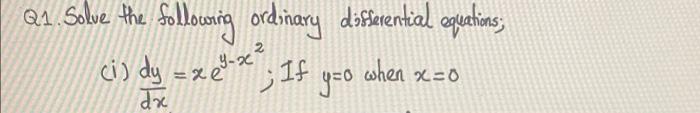 Q1. Solve the following ordinary differential equations;
(i) dy/dx = xe^{y-x^2}; If y=0 when x=0